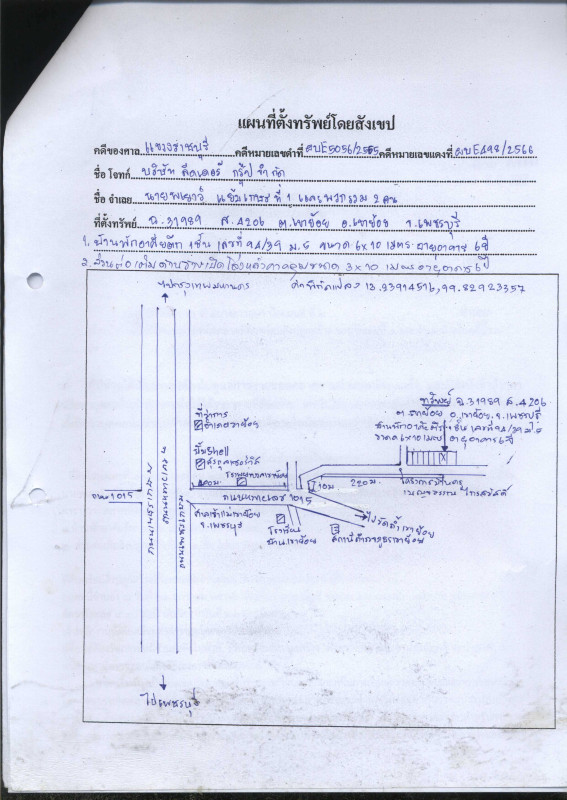 แผนที่ตั้งทรัพย์โดยสังเขป
คดีของศาล แขวงราชบุรี คดีหมายเลขดำที่ ผบE5056/2565 คดีหมายเลขแดงที่ ผบE498/2566
ชื่อ โจทก์ บริษัท ลีดเดอร์ กรุ๊ป จำกัด
ชื่อ จำเลย ที่ 1 และพวกรวม 2 คน
ที่ตั้งทรัพย์ ฉ.31989 ส.4206 ต.เขาย้อย อ.เขาย้อย จ.เพชรบุรี
1. บ้านพักอาศัยตึก 1 ชั้น เลขที่ 94/39 ม.5 ขนาด 6x10 เมตร อายุอาคาร 6 ปี
2. ส่วนต่อเติมด้านข้างเปิดโล่ง ขนาด 3x10 เมตร อายุอาคาร 6 ปี
ไปกรุงเทพมหานคร
13.2391451, 99.82923357
ทรัพย์ ฉ.31989 ส.4206
ต.เขาย้อย อ.เขาย้อย จ.เพชรบุรี
ชั้น เลขที่ 94/39 ม.5
ขนาด 6x10 เมตร อายุอาคาร 6 ปี
ที่ว่าการ
อำเภอเขาย้อย
ปั๊ม Shell
โรงพยาบาลเขาย้อย
10 ม.
220 ม.
โครงการบ้าน
ถนน 1015
ถนนเพชรเกษม
ถนนเพชรเกษม
ถนนหมายเลข 1015
ศาลเจ้าแม่เขาย้อย
จ.เพชรบุรี
โรงเรียน
บ้านเขาย้อย
สถานีตำรวจภูธรเขาย้อย
ไปวัดถ้ำเขาย้อย
ไปเพชรบุรี